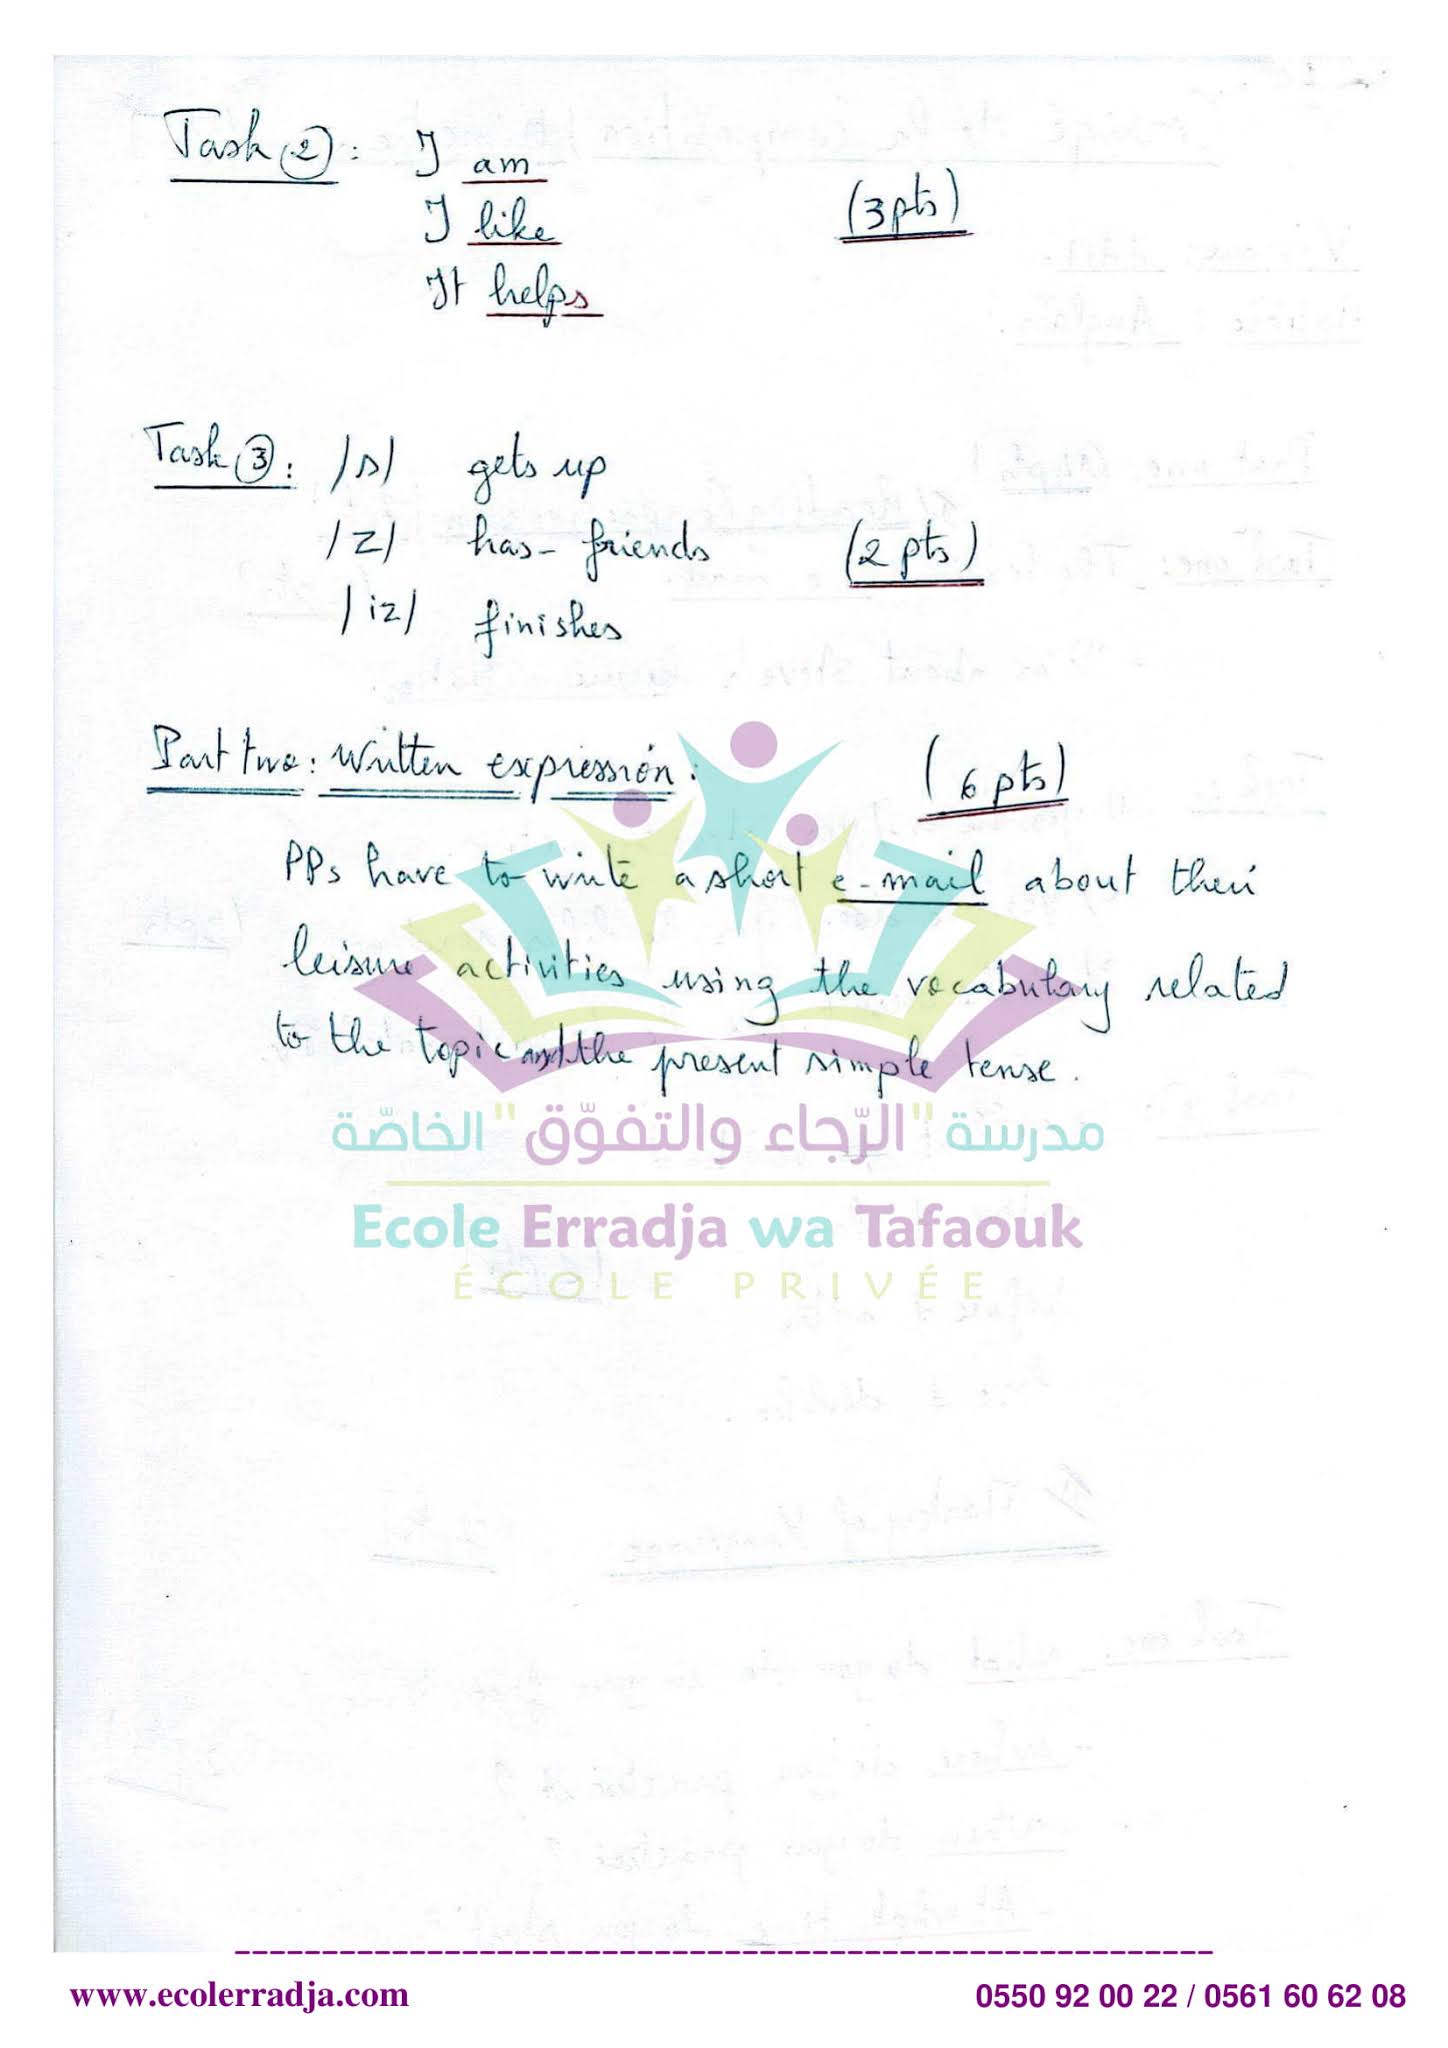 Task 2 : I am
(3 pts)
I like
It helps
Task 3 : /s/ gets up
/z/ has - friends (2 pts)
/iz/ finishes
Part two : Written expression : (6 pts)
PPs have to write a short e-mail about their
leisure activities using the vocabulary related
to the topic and the present simple tense.
مدرسة "الرّجاء والتفوّق" الخاصّة
Ecole Erradja wa Tafaouk
ÉCOLE PRIVÉE
www.ecolerradja.com 0550 92 00 22 / 0561 60 62 08